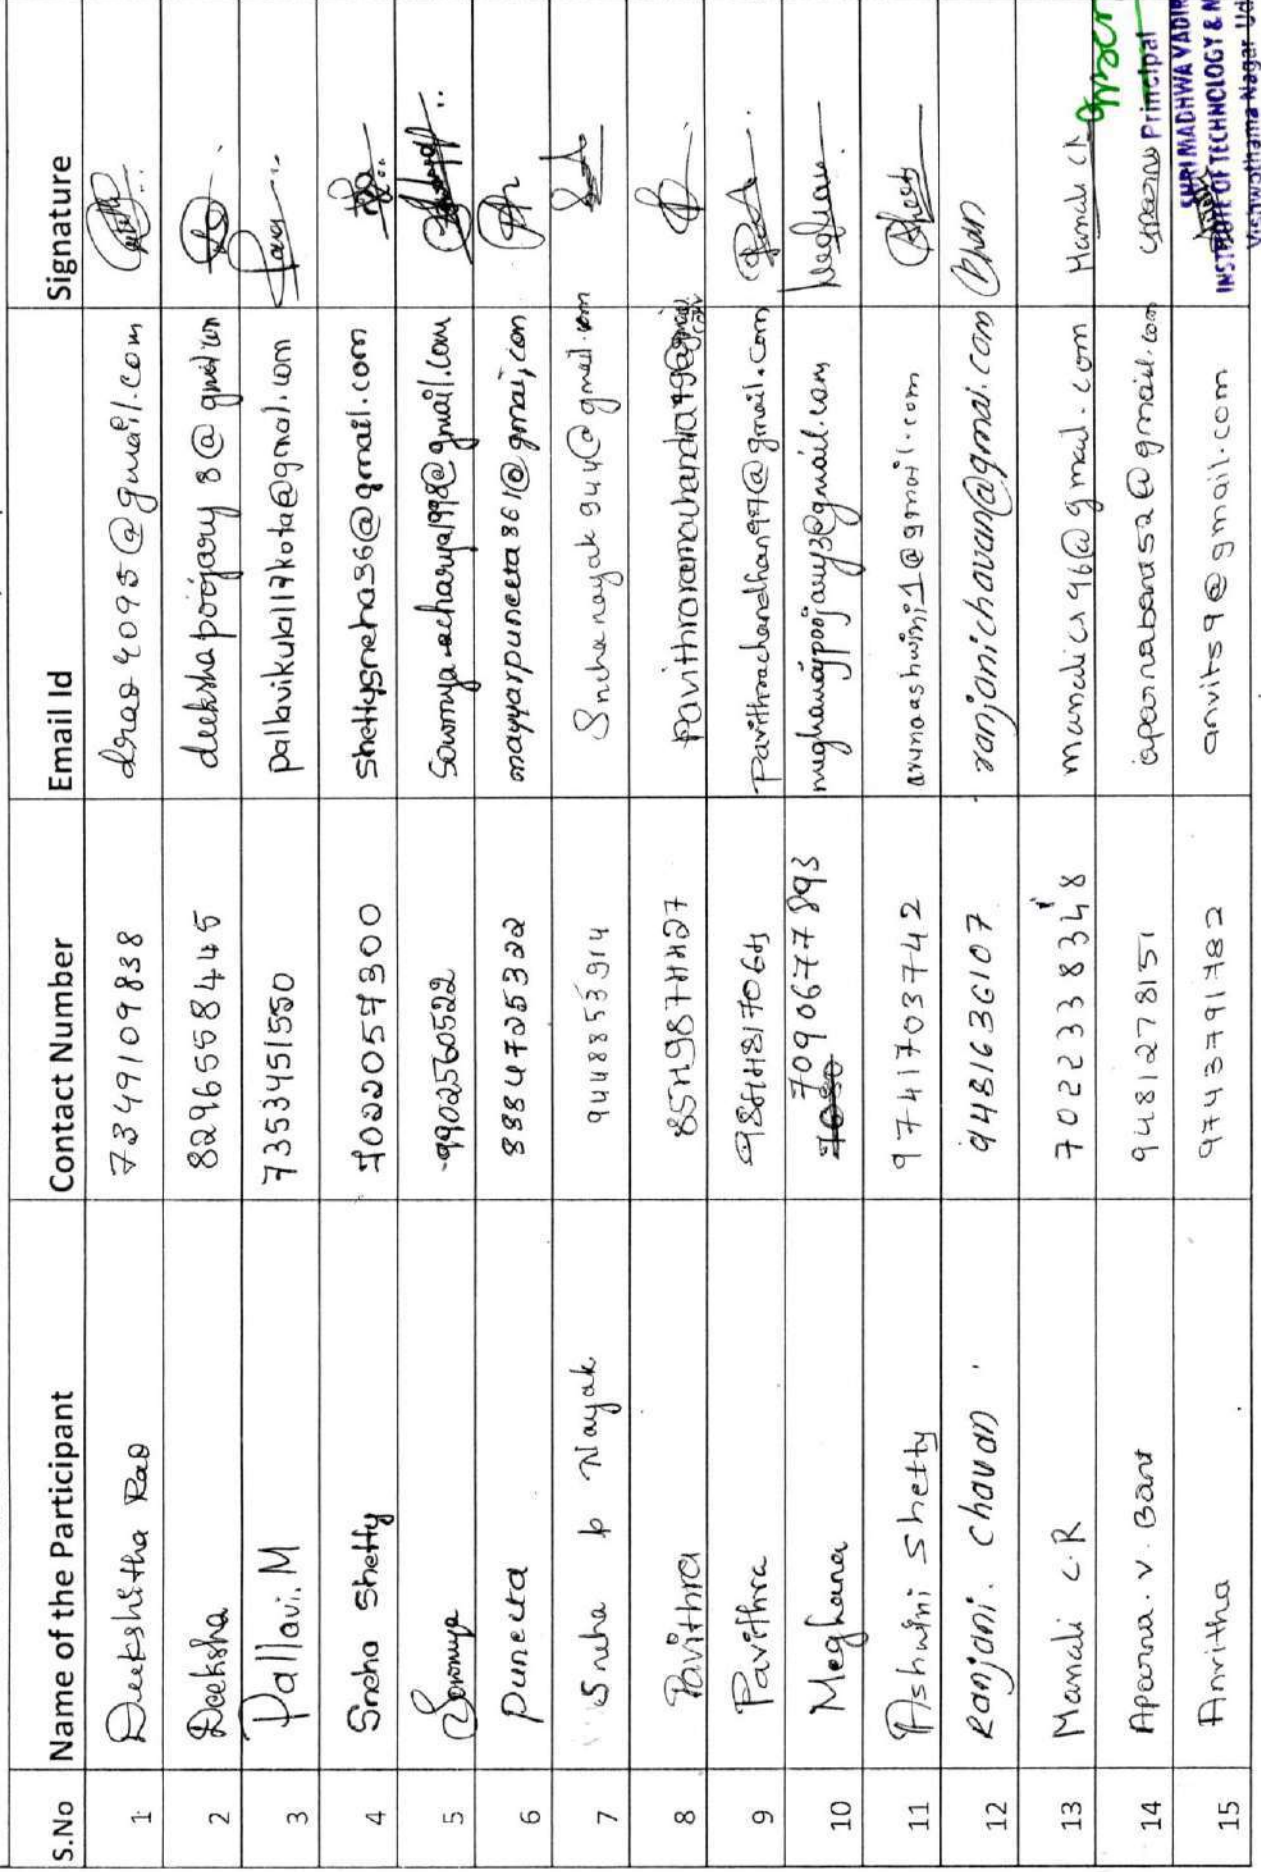 S.No Name of the Participant Contact Number Email Id Signature
1 Deekshitha Rao 7349109838 drao4095@gmail.com
2 Deeksha 8296558445 deekshapoojary8@gmail.com
3 Pallavi.M 7353451550 pallavikukil17kota@gmal.com
4 Sneha Shetty 7022057300 Shettysneha36@gmail.com
5 Sowmya 9902560522 Sowmya.acharya1998@gmail.com
6 Puneeta 8884725322 mayyarpuneeta861@gmai,con
7 Sneha p Nayak 9448853914 Snehanayak944@gmail.com
8 Pavithra
9 Pavithra Pavithrachandhan997@gmail.com
10 Meghana 7090677893 Meghana
11 Ashwini Shetty 9741703742 arunaashwini1@gmail.com
12 Ranjani. Chavan 9481636107 ranjanichavan@gmai.com
13 Manali C.R 7022338348 manalicr96@gmail.com Manali CR
14 Aparna. V. Bant 9481278151 Principal
15 Anvitha 9743791782 anvits9@gmail.com
SHRI MADHWA VADIR
INSTITUTE OF TECHNOLOGY & M
Vishwothama Nagar Ud